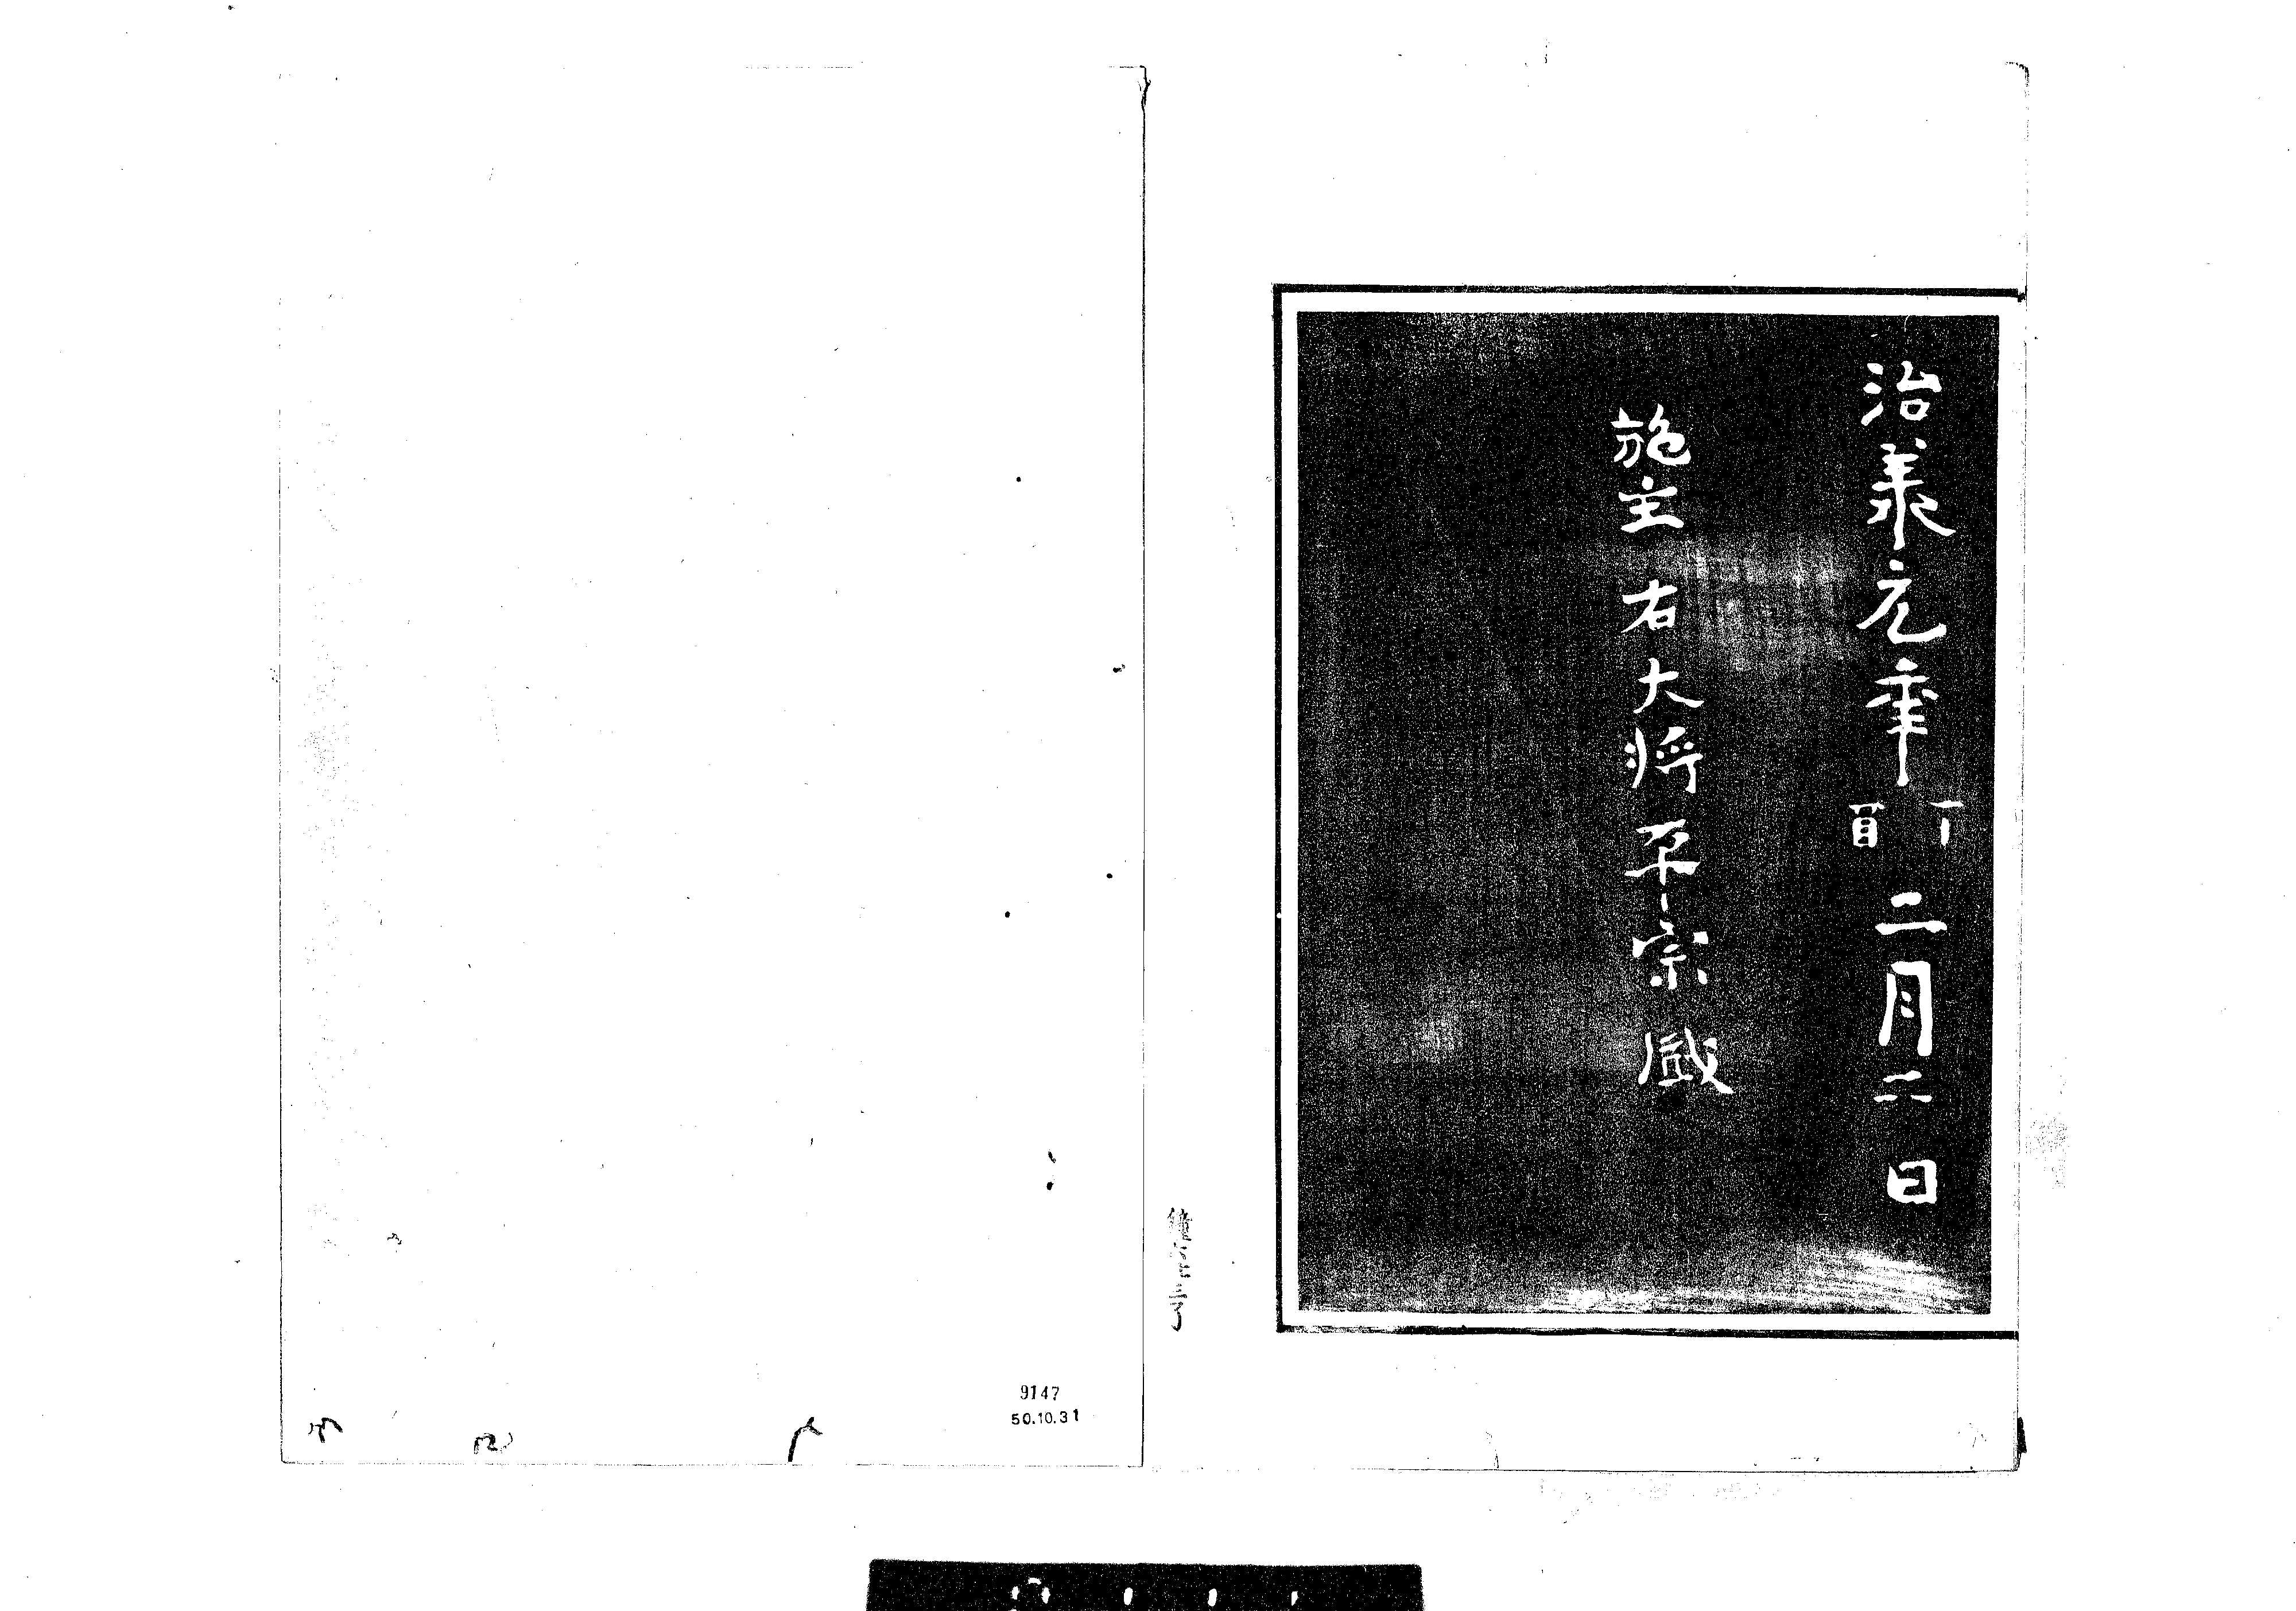 治承元年丁酉二月二日
施主右大将平宗盛
9147
50.10.31